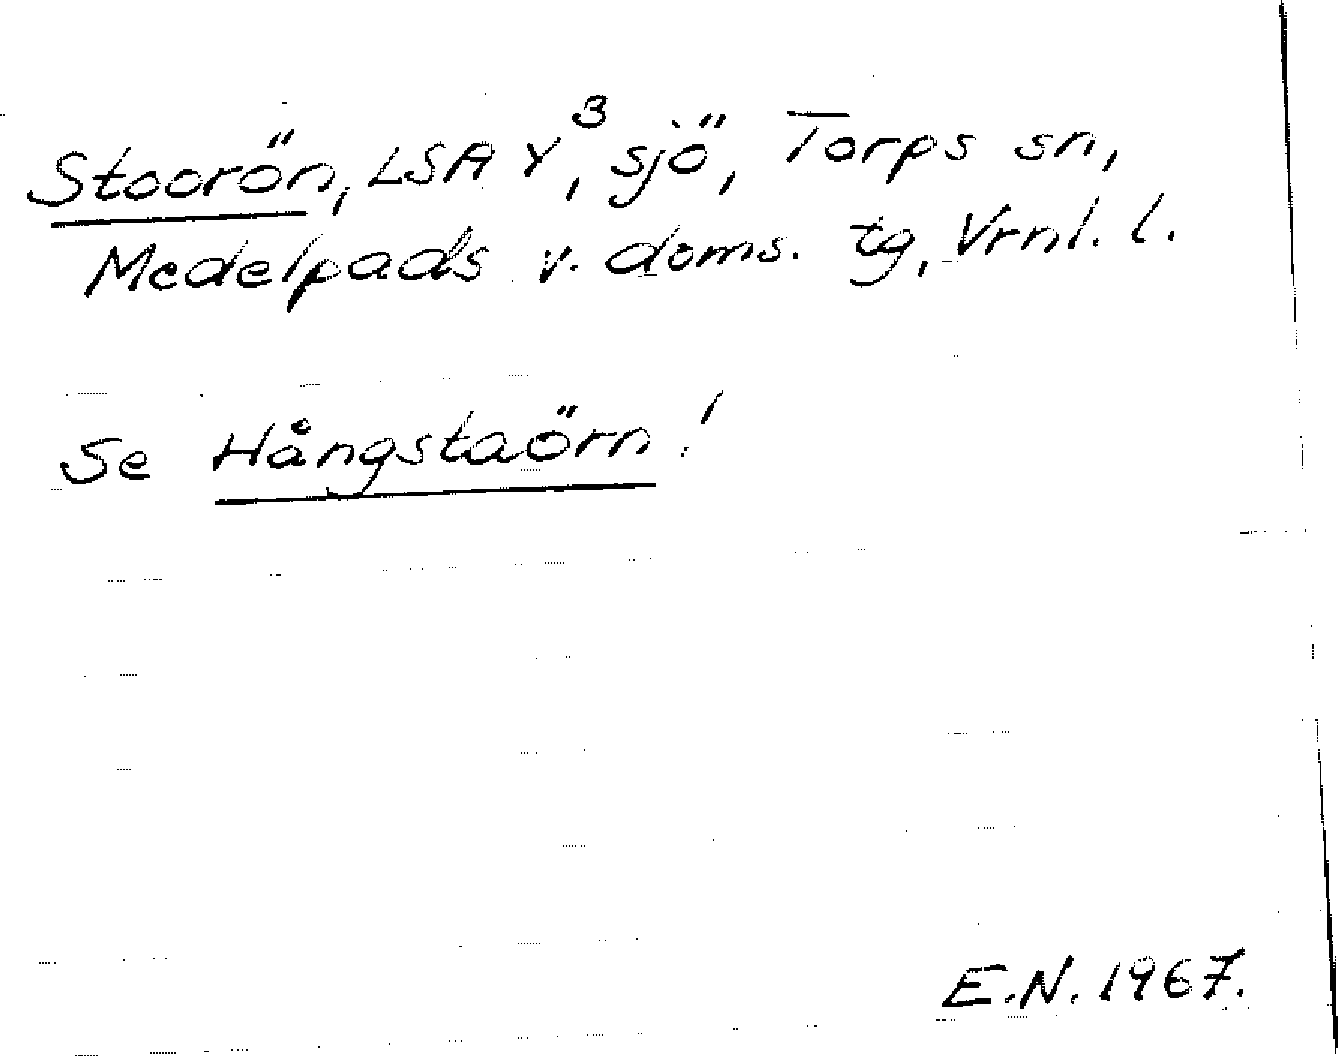 Stoorön, LSA Y³, sjö, Torps sn,
Medelpads v. doms. tg, Vrnl. l.
Se Hångstaörn!
E.N. 1967.